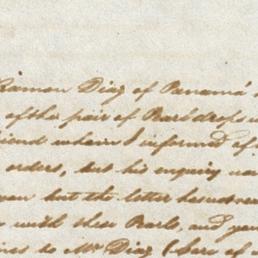 Ramon Diaz of Panamá
of the pair of Pearl drops
friend whom I informed of
orders, but his enquiry
but the letter has not
with these Pearls, and
to Mr Diaz (Care of